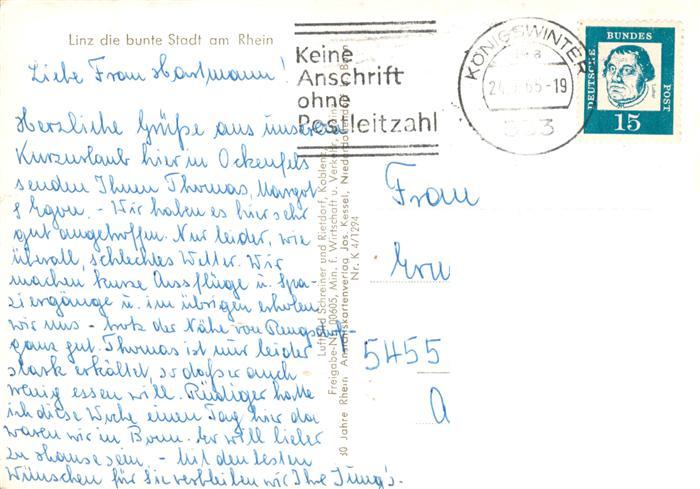 Linz die bunte Stadt am Rhein
Liebe Frau Hartmann!
Herzliche Grüße aus unserem
Kurzurlaub hier in Ockenfels
senden Ihnen Thomas, Margot
& Egon. - Wir haben es hier sehr
gut angetroffen. Nur leider, wie
überall, schlechtes Wetter. Wir
machen kurze Ausflüge u. Spa-
ziergänge u. im übrigen erholen
wir uns - trotz der Nähe von Rengsdorf -
ganz gut. Thomas ist nur leider
stark erkältet, so daß er auch
wenig essen will. Rüdiger hatte
ich diese Woche einen Tag hier da
waren wir in Bonn. Er will lieber
zu Hause sein. - Mit den besten
Wünschen für Sie verbleiben wir Ihre Jung's.
Keine
Anschrift
ohne
Postleitzahl
KÖNIGSWINTER
65-19
533
DEUTSCHE BUNDES POST
15
Frau
Ern
5455
Luftbild Schreiner und Rietdorf, Koblenz,
Freigabe-Nr. 00605, Min. f. Wirtschaft u. Verkehr,
30 Jahre Rhein. Ansichtskartenverlag Jos. Kessel, Niederdollendorf
Nr. K 4/1294